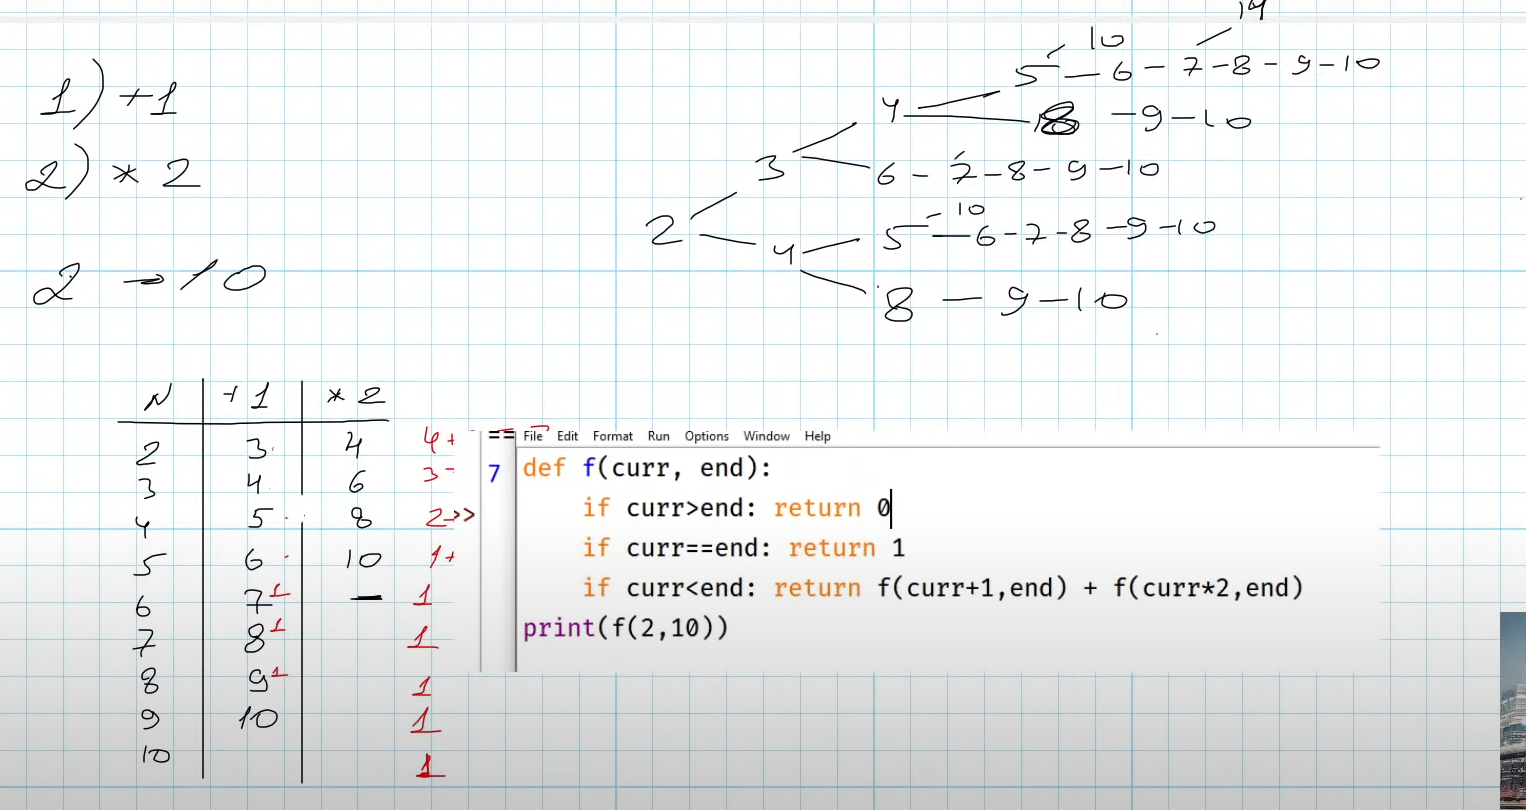 1) +1
2) * 2
2 → 10
14
10
5 — 6 — 7 – 8 – 9 – 10
4
8 — 9 — 10
3
6 – 7 – 8 – 9 – 10
2
10
5 — 6 – 7 – 8 – 9 – 10
4
8 — 9 – 10
N +1 * 2
2 3 4 4+
3 4 6 3
4 5 8 2
5 6 10 1+
6 7 1 — 1
7 8 1 1
8 9 1 1
9 10 1
10 1
==
7
>>
File Edit Format Run Options Window Help
def f(curr, end):
if curr>end: return 0
if curr==end: return 1
if curr<end: return f(curr+1,end) + f(curr*2,end)
print(f(2,10))